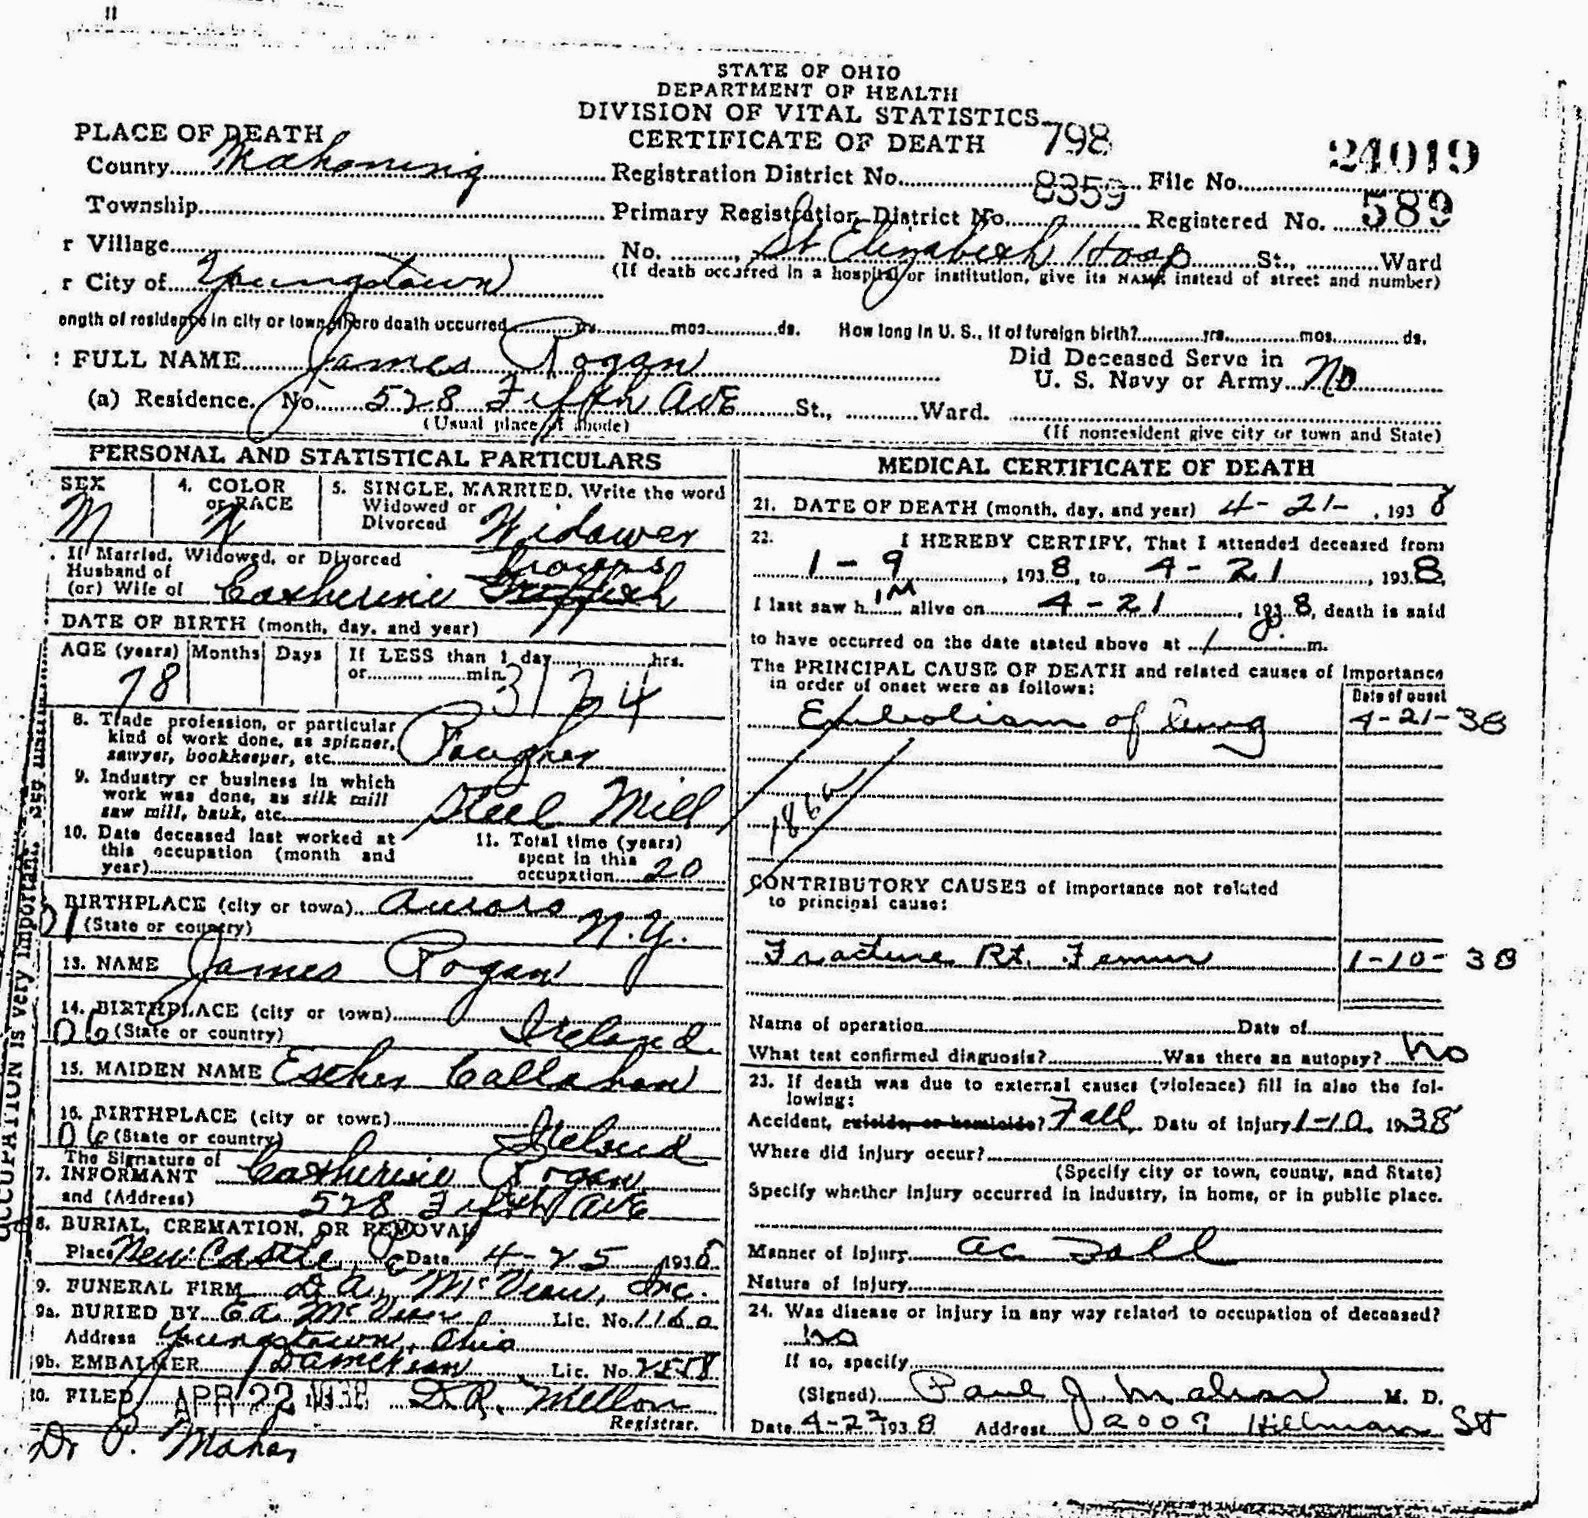 STATE OF OHIO
DEPARTMENT OF HEALTH
DIVISION OF VITAL STATISTICS
CERTIFICATE OF DEATH
PLACE OF DEATH
County Mahoning
Registration District No. 798 File No. 24019
Township
Primary Registration District No. 8359 Registered No. 589
r Village
No. , St Elizabeth Hosp St., Ward
(If death occurred in a hospital or institution, give its NAME instead of street and number)
r City of Youngstown
ength of residence in city or town where death occurred yrs. mos. ds. How long in U. S., if of foreign birth? yrs. mos. ds.
FULL NAME James Rogan
Did Deceased Serve in
U. S. Navy or Army No
(a) Residence. No. 528 Fifth AVE St., Ward.
(Usual place of abode) (If nonresident give city or town and State)
PERSONAL AND STATISTICAL PARTICULARS
SEX M
4. COLOR or RACE W
5. SINGLE, MARRIED, Write the word
Widowed or
Divorced Widower
If Married, Widowed, or Divorced
Husband of
(or) Wife of Catherine
DATE OF BIRTH (month, day, and year)
AGE (years) Months Days If LESS than 1 day hrs.
or min.
78
8. Trade profession, or particular
kind of work done, as spinner,
sawyer, bookkeeper, etc.
9. Industry or business in which
work was done, as silk mill
saw mill, bank, etc. Steel Mill
10. Date deceased last worked at
this occupation (month and
year)
11. Total time (years)
spent in this
occupation 20
BIRTHPLACE (city or town) Aurora
(State or country) N.Y.
13. NAME James Rogan
14. BIRTHPLACE (city or town)
06 (State or country) Ireland
15. MAIDEN NAME Esther Callahan
16. BIRTHPLACE (city or town)
06 (State or country) Ireland
The Signature of
7. INFORMANT Catherine Rogan
and (Address) 528 Fifth AVE
8. BURIAL, CREMATION, OR REMOVAL
Place New Castle, Pa Date 4-25 1938
9. FUNERAL FIRM
9a. BURIED BY Lic. No.
Address Youngstown, Ohio
9b. EMBALMER Lic. No.
10. FILED APR 22 1938 D.R. Mellon
Registrar.
Dr P. Mahar
OCCUPATION is very important.
MEDICAL CERTIFICATE OF DEATH
21. DATE OF DEATH (month, day, and year) 4-21-, 1938
22. I HEREBY CERTIFY, That I attended deceased from
1-9, 1938, to 4-21, 1938,
I last saw him alive on 4-21, 1938, death is said
to have occurred on the date stated above at 1 p. m.
The PRINCIPAL CAUSE OF DEATH and related causes of importance
in order of onset were as follows:
Date of onset
Embolism of lung 4-21-38
CONTRIBUTORY CAUSES of importance not related
to principal cause:
Fracture Rt. Femur 1-10-38
Name of operation Date of
What test confirmed diagnosis? Was there an autopsy? No
23. If death was due to external causes (violence) fill in also the fol-
lowing:
Accident, suicide, or homicide? Fall Date of injury 1-10, 1938
Where did injury occur?
(Specify city or town, county, and State)
Specify whether injury occurred in industry, in home, or in public place.
Manner of injury ac Fall
Nature of injury
24. Was disease or injury in any way related to occupation of deceased?
No
If so, specify
(Signed) Paul J. Mahar M. D.
Date 4-22 1938 Address 2007 Hillman St